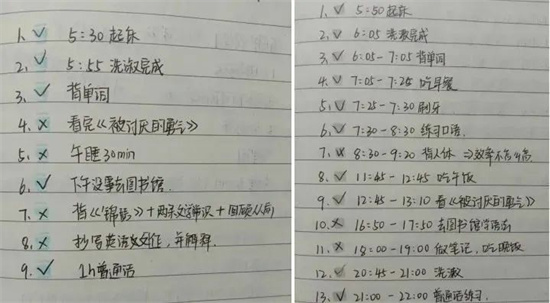 1. ✓ 5:30 起床
2. ✓ 5:55 洗漱完成
3. ✓ 背单词
4. × 看完《被讨厌的勇气》
5. × 午睡30min
6. ✓ 下午没事去图书馆.
7. × 背《锦瑟》+ 两条文学常识 + 回顾从前
8. × 抄写英语
9. ✓ 1h普通话
1. ✓ 5:50 起床
2. ✓ 6:05 洗漱完成
3. ✓ 6:05-7:05 背单词
4. ✓ 7:05-7:25 吃早餐
5. ✓ 7:25-7:30 刷牙
6. ✓ 7:30-8:30 练习口语.
7. × 8:30-9:20 背 ⇒效率不高
8. ✓ 11:45-12:45 吃午饭
9. ✓ 12:45-13:10 看《被讨厌的勇气》
10. × 16:50-17:50 去图书馆
11. × 18:00-19:00 做笔记, 吃晚饭
12. ✓ 20:45-21:00 洗漱
13. ✓ 21:00-22:00 普通话练习.